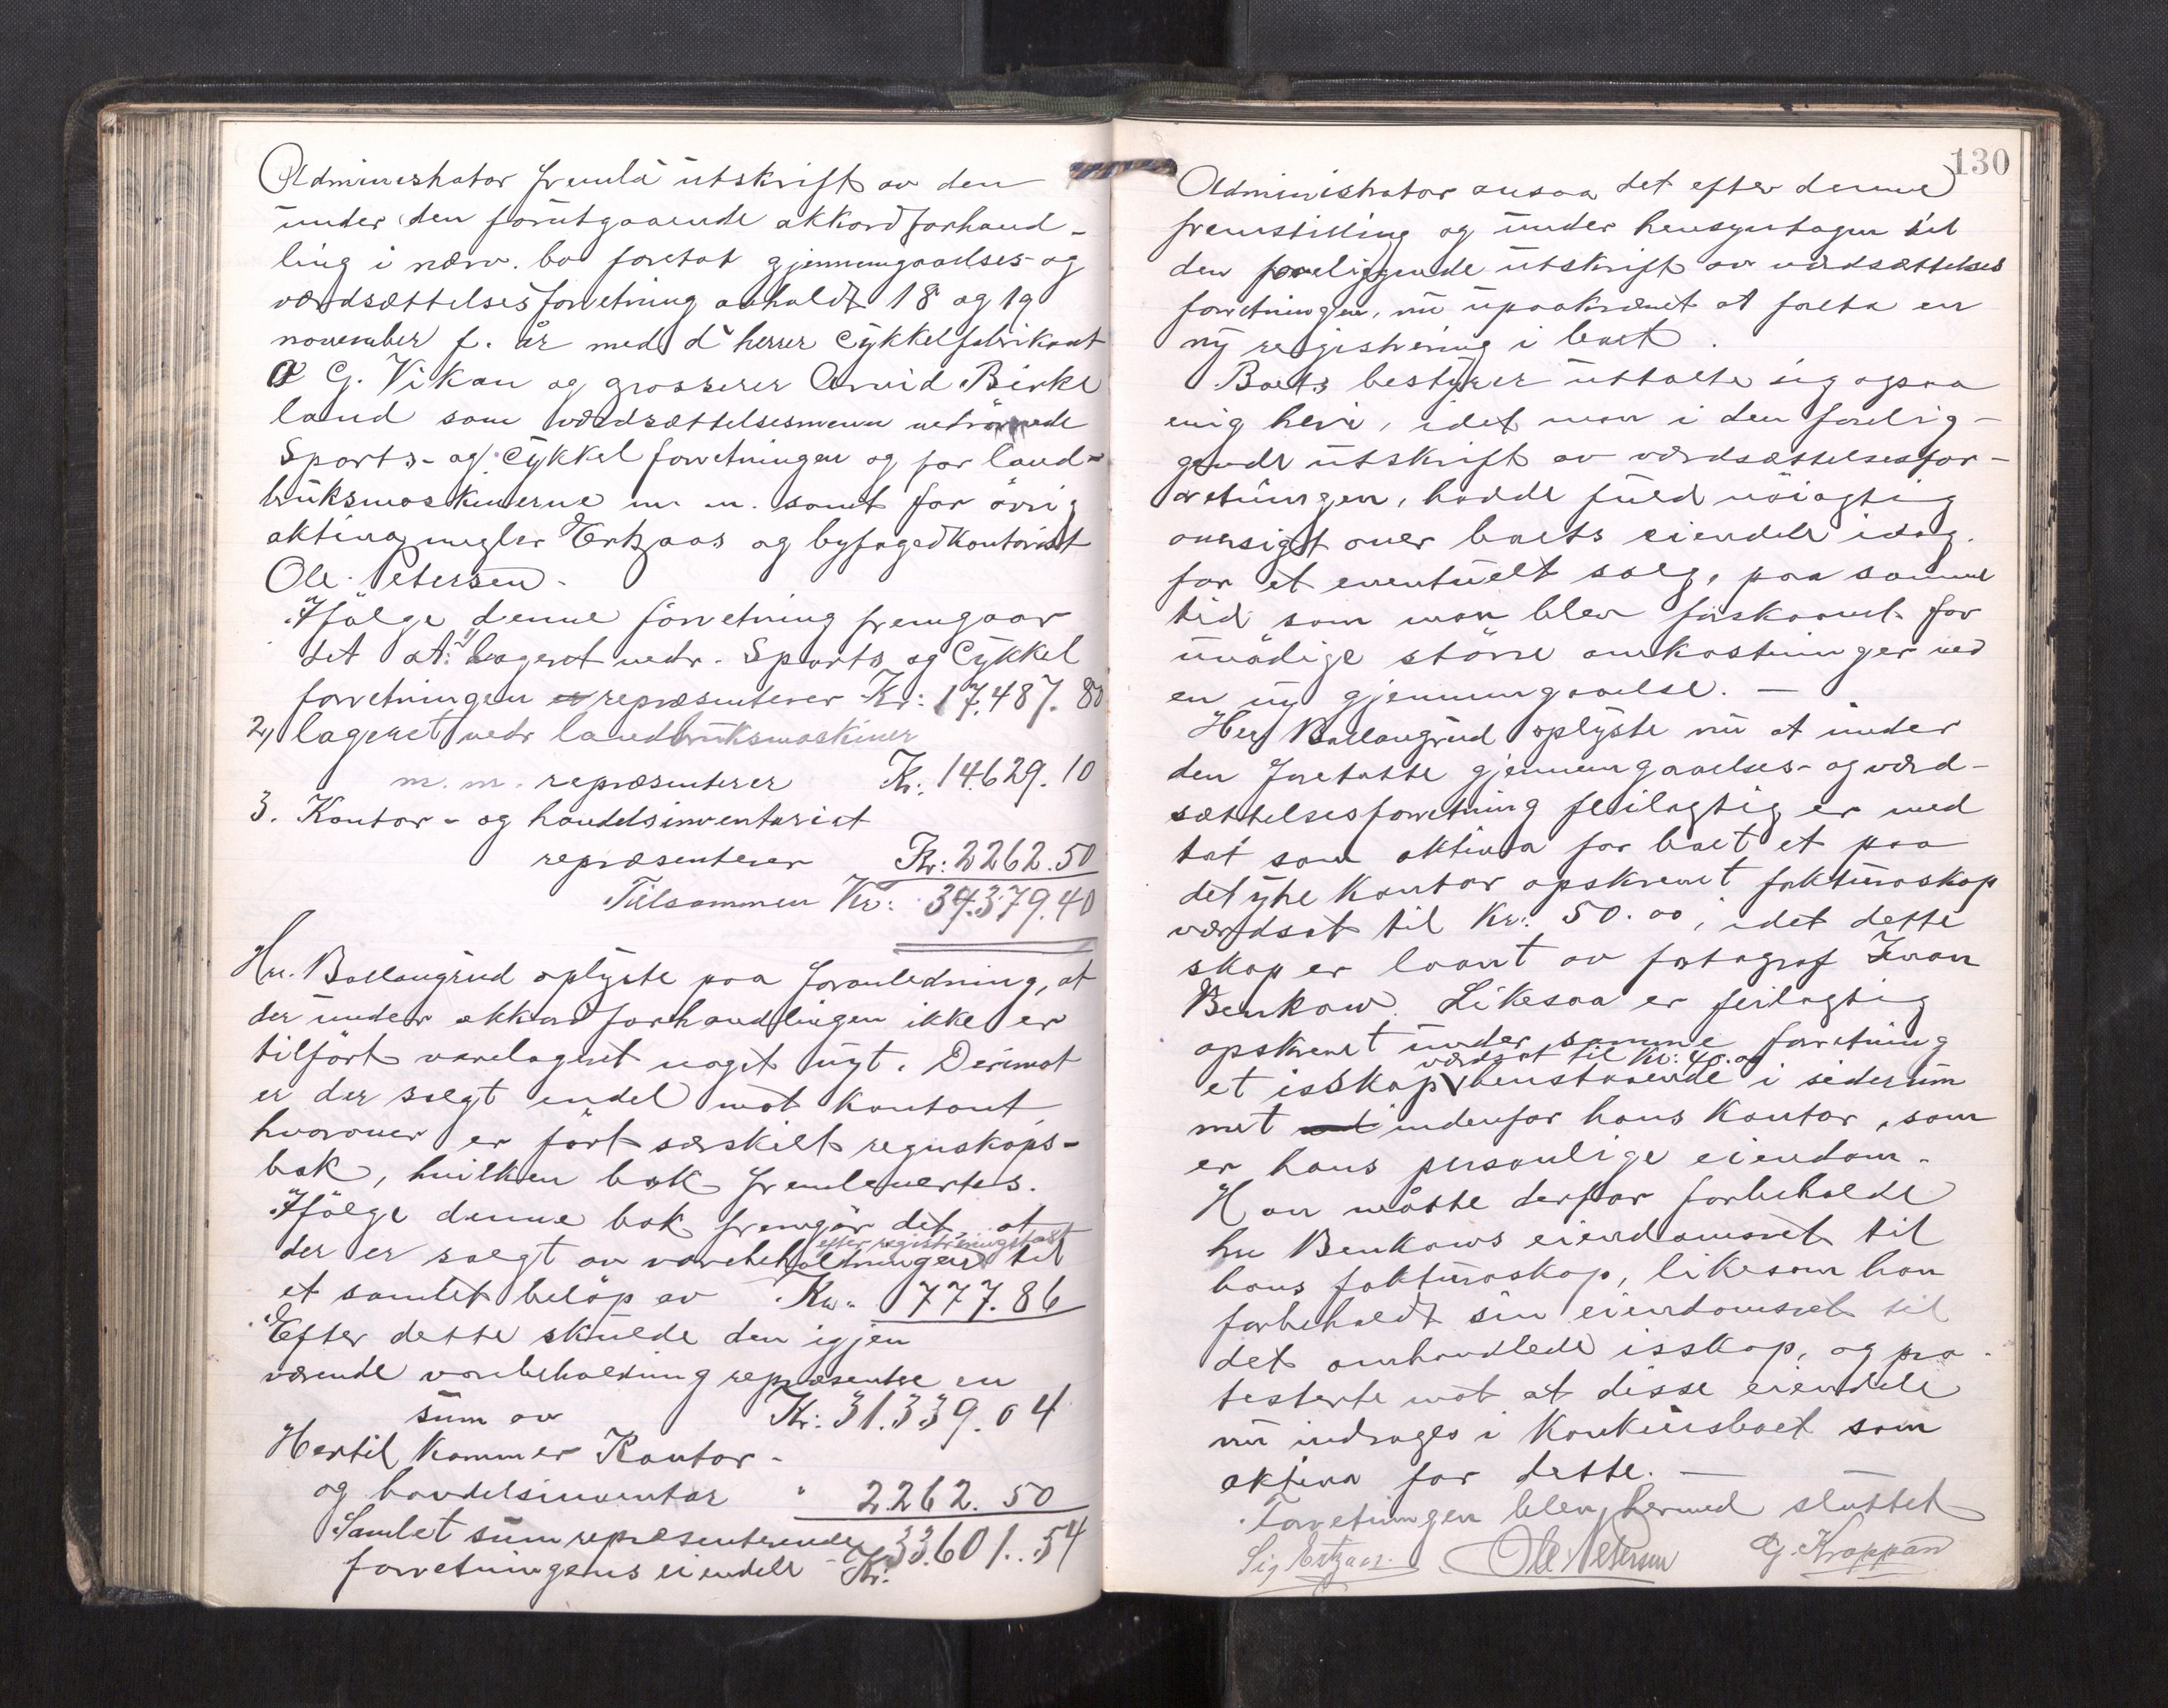 Administrator fremla utskrift av den
under den forutgaaende akkordforhand-
ling i nærv. bo foretat gjennemgaaelses- og
værdsættelsesforretning avholdt 18 og 19
november f. år med d'herrer Cykkelfabrikant
O G. Vikan og grosserer Arvid Birke
land som værdsættelsesmenn vedrørende
Sports- og Cykkelforretningen og for land-
bruksmaskinerne m. m. samt for övrig
aktiva megler Ertzaas og byfogedkontorist
Ole Petersen.
Ifölge denne forretning fremgaar
det at: lageret vedr. Sports og Cykkel
forretningen repræsenterer Kr: 17.487.80
2, lageret vedr landbruksmaskiner
m. m. repræsenterer Kr: 14.629.10
3. Kontor- og handelsinventariet
repræsenterer Kr: 2262.50
Tilsammen Kr: 34.379.40
Hr. Ballangrud oplyste paa foranledning, at
der under akkordforhandlingen ikke er
tilfört varelageret noget nyt. Derimot
er der solgt endel mot kontant
hvorover er fört særskilt regnskaps-
bok, hvilken bok fremlevertes.
Ifölge denne bok fremgår det, at
efter registreringstast
der er solgt av varebeholdningen til
et samlet belöp av Kr. 777.86
Efter dette skulde den igjen
værende varebeholdning repræsentere en
sum av Kr: 31.339.04
Hertil kommer Kontor-
og handelsinventar " 2262.50
Samlet sum repræsenterende
forretningens eiendele Kr. 33.601.54
130
Administrator ansaa det efter denne
fremstilling og under hensyntagen til
den foreliggende utskrift av værdsættelses
forretningen, nu upaakrævet at foreta en
ny registrering i boet.
Boets bestyrer uttalte sig ogsaa
enig heri, idet man i den forelig-
gende utskrift av værdsættelsesfor-
retningen, hadde fuld nöiagtig
oversigt over boets eiendele idag.
for et eventuelt salg, paa samme
tid som man blev forskaanet for
unödige större omkostninger ved
en ny gjennemgaaelse. —
Herr Ballangrud oplyste nu at under
den foretatte gjennemgaaelses- og værd-
sættelsesforretning feilagtig er med
tat som aktiva for boet et paa
det ytre Kontor opskrevet fakturaskap
værdsat til Kr: 50.00, idet dette
skap er laant av fotograf Ivan
Benkow. Likesaa er feilagtig
opskrevet under samme forretning
værdsat til Kr: 40.00
et isskap henstaaende i siderum
met indenfor hans Kontor, som
er hans personlige eiendom.
Han måtte derfor forbeholde
hr Benkows eiendomsret til
hans fakturaskap, likesom han
forbeholdt sin eiendomsret til
det omhandlede isskap, og pro-
testerte mot at disse eiendele
nu indrages i Konkursboet som
aktiva for dette. —
Forretningen blev hermed sluttet
Sig Ertzaas. Ole Petersen G. Kroppan